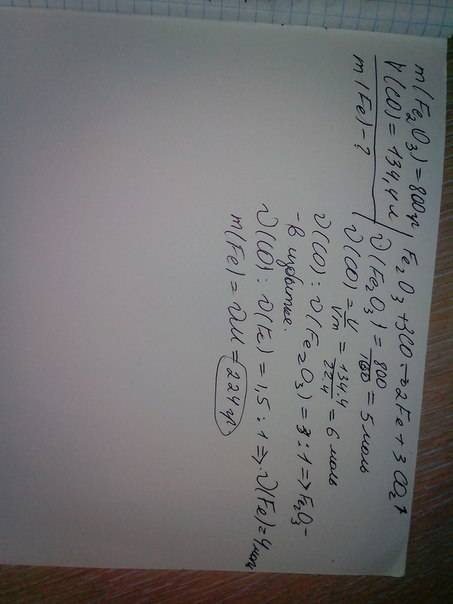 m(Fe₂O₃) = 800 гр
V(CO) = 134,4 л
m(Fe) - ?
Fe₂O₃ + 3CO → 2Fe + 3CO₂↑
ν(Fe₂O₃) = 800/160 = 5 моль
ν(CO) = V/Vm = 134.4/22.4 = 6 моль
ν(CO) : ν(Fe₂O₃) = 3 : 1 => Fe₂O₃ -
- в избытке.
ν(CO) : ν(Fe) = 1,5 : 1 => ν(Fe) = 4 моль
m(Fe) = νM = 224 гр